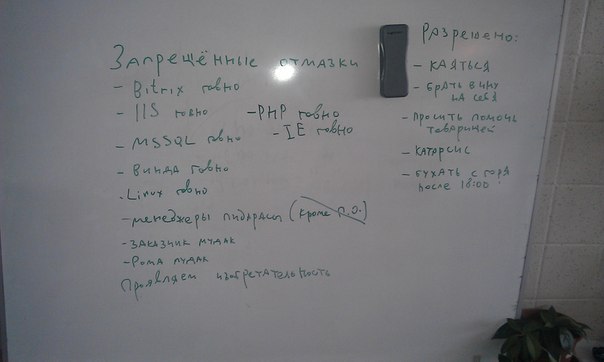 Запрещённые отмазки
- Bitrix говно
- IIS говно
- PHP говно
- IE говно
- MSSQL говно
- Винда говно
- Linux говно
- менеджеры пидарасы (кроме П.О.)
- заказчик мудак
- Рома мудак
Проявляем изобретательность
Разрешено:
- каяться
- брать вину
на себя
- просить помощь
товарищей
- катарсис
- бухать с горя
после 18:00